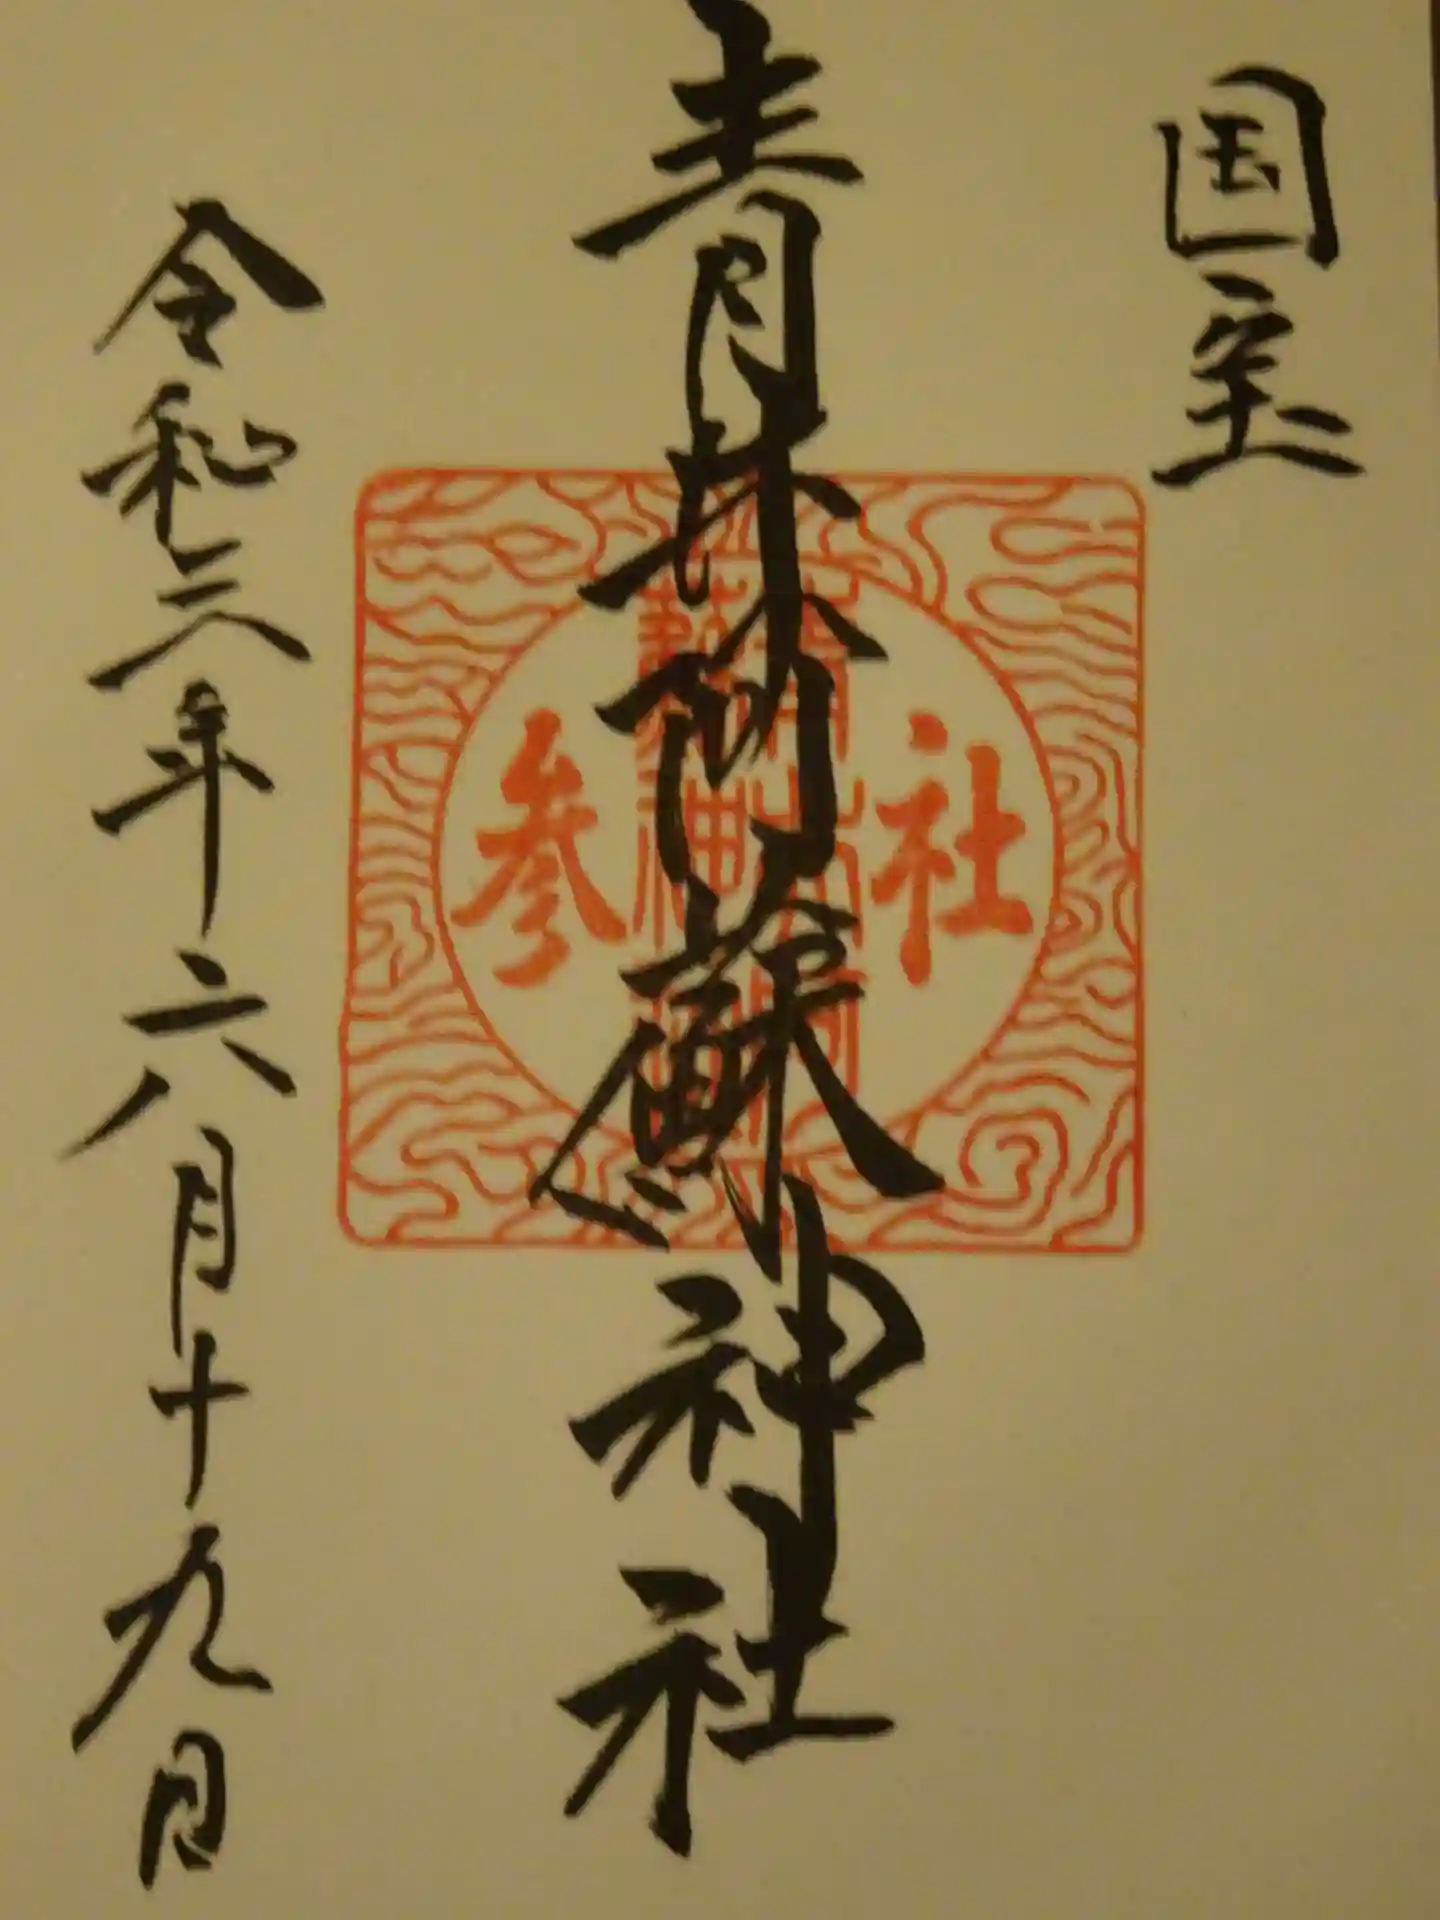 国宝
青井阿蘇神社
参 社
令和三年六月十九日